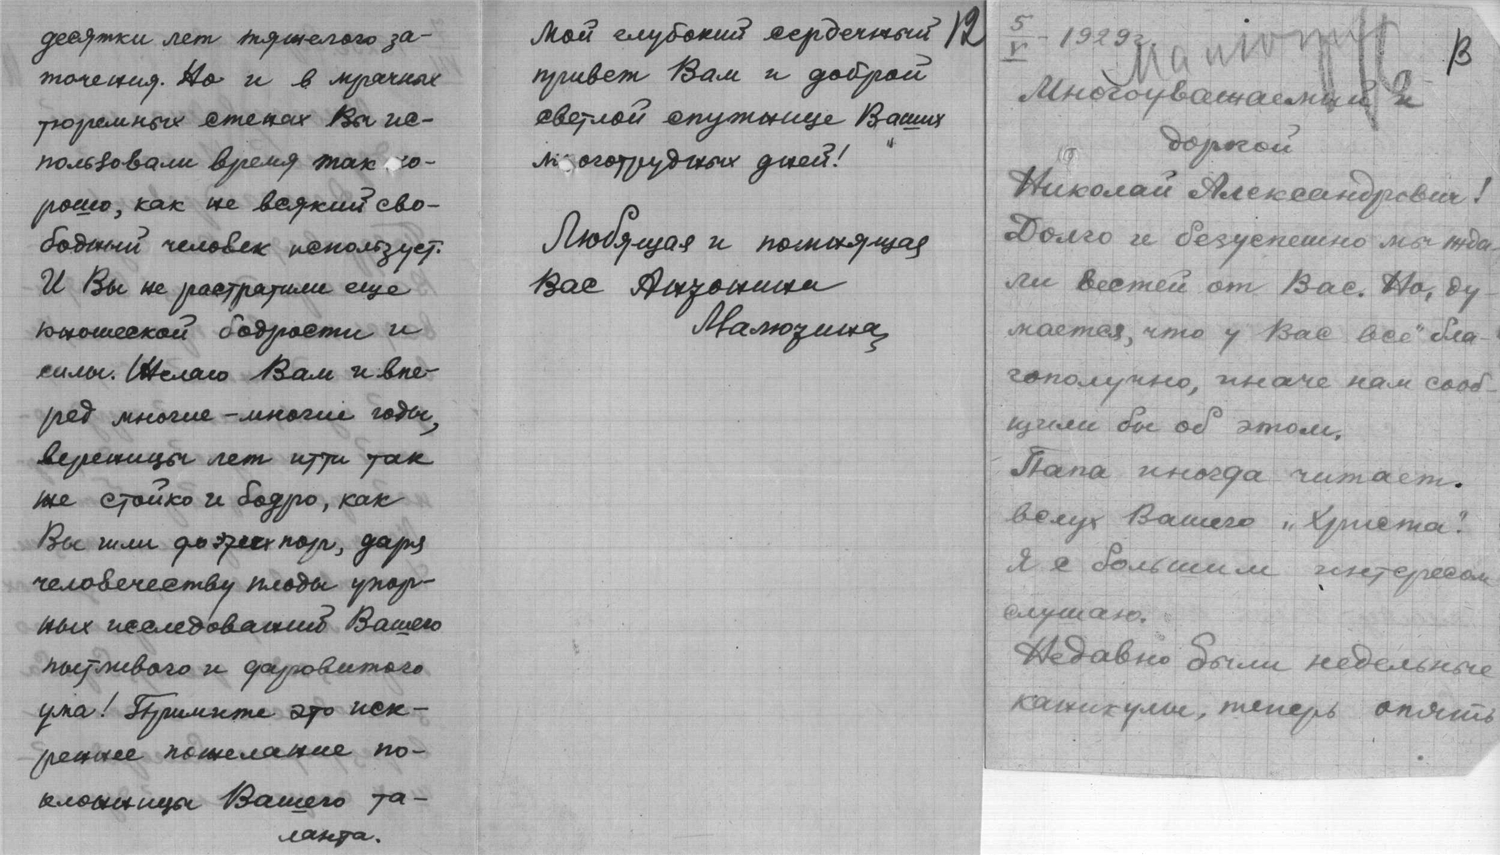 десятки лет тяжелого за-
точения. Но и в мрачных
тюремных стенах Вы ис-
пользовали время так хо-
рошо, как не всякий сво-
бодный человек использует.
И Вы не растратили еще
юношеской бодрости и
силы. Желаю Вам и впе-
ред многие-многие годы,
вереницы лет итти так
же стойко и бодро, как
Вы шли до этих пор, даря
человечеству плоды упор-
ных исследований Вашего
пытливого и даровитого
ума! Примите это иск-
реннее пожелание по-
клонницы Вашего та-
ланта.
Мой глубокий сердечный
привет Вам и доброй
светлой спутнице Ваших
многотрудных дней!
Любящая и помнящая
Вас Антонина
Малюзина
12
5/V - 1929 г.
В
Многоуважаемый и
дорогой
Николай Александрович!
Долго и безуспешно мы жда-
ли вестей от Вас. Но, ду-
мается, что у Вас всё бла-
гополучно, иначе нам сооб-
щили бы об этом.
Папа иногда читает
вслух Вашего „Христа".
Я с большим интересом
слушаю.
Недавно были недельные
каникулы, теперь опять